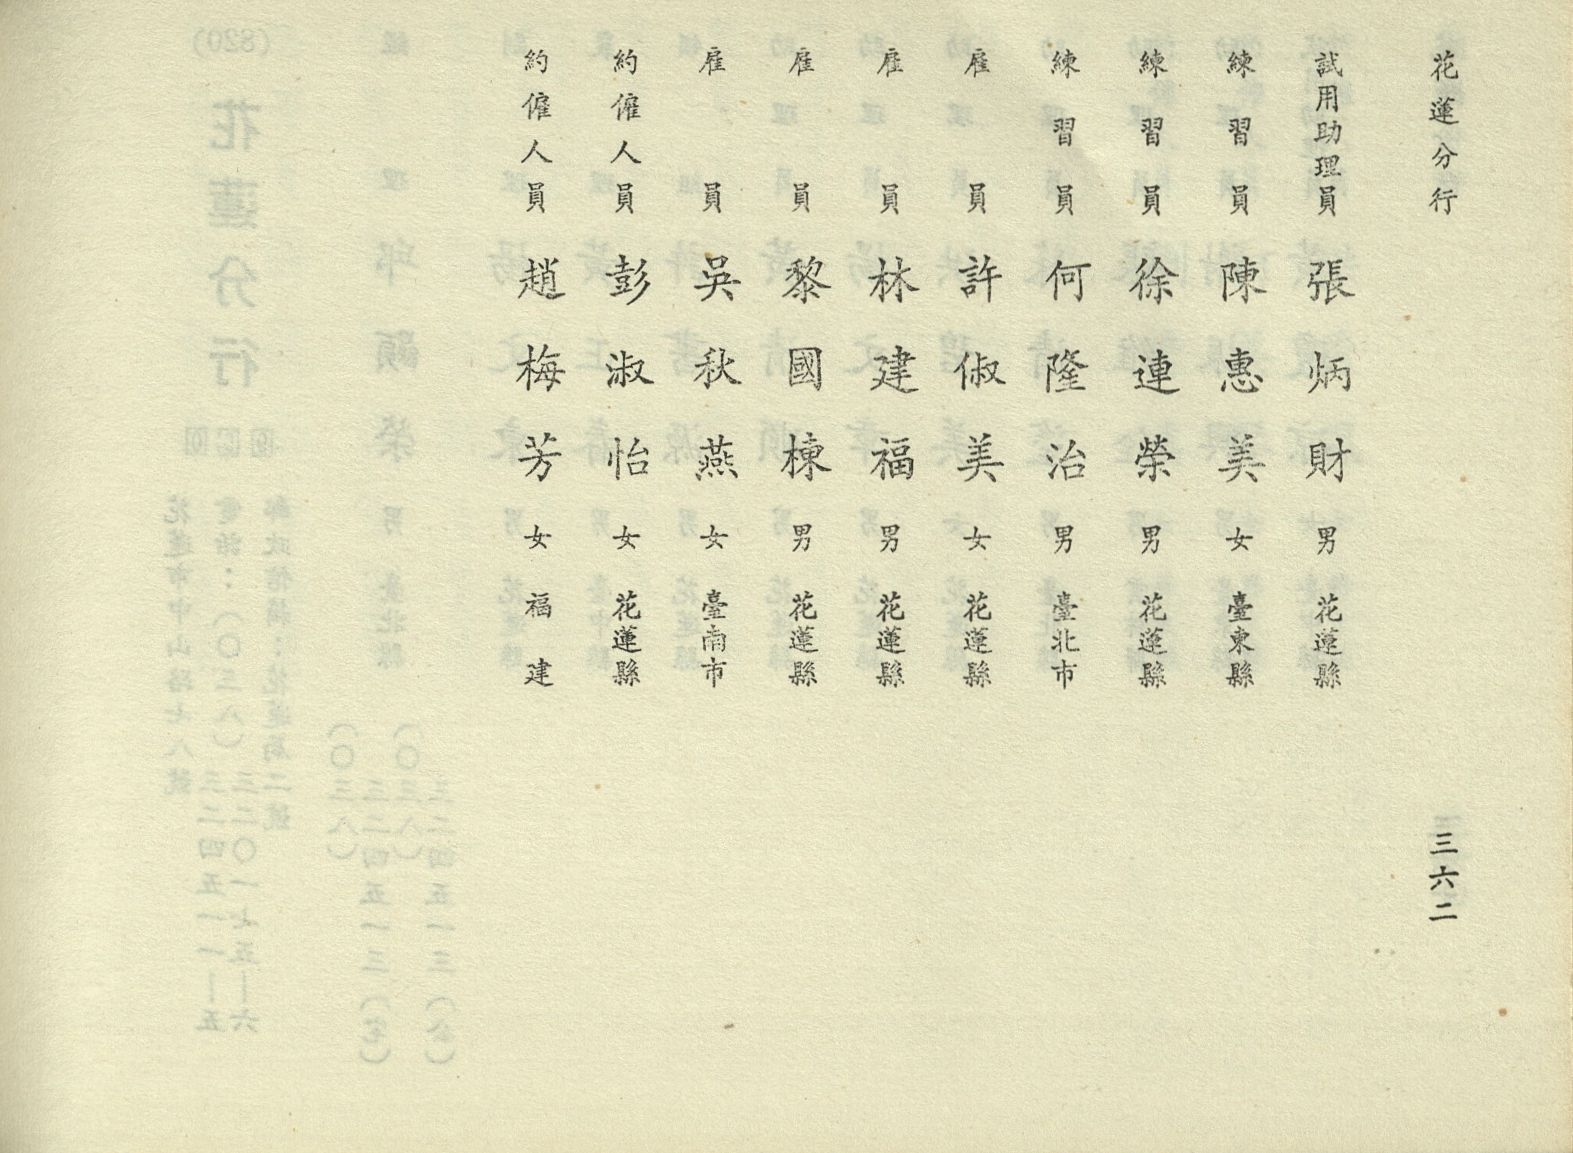 花蓮分行
三六二
試用助理員 張炳財 男 花蓮縣
練習員 陳惠美 女 臺東縣
練習員 徐連榮 男 花蓮縣
練習員 何隆治 男 臺北市
雇員 許俶美 女 花蓮縣
雇員 林建福 男 花蓮縣
雇員 黎國棟 男 花蓮縣
雇員 吳秋燕 女 臺南市
約僱人員 彭淑怡 女 花蓮縣
約僱人員 趙梅芳 女 福建